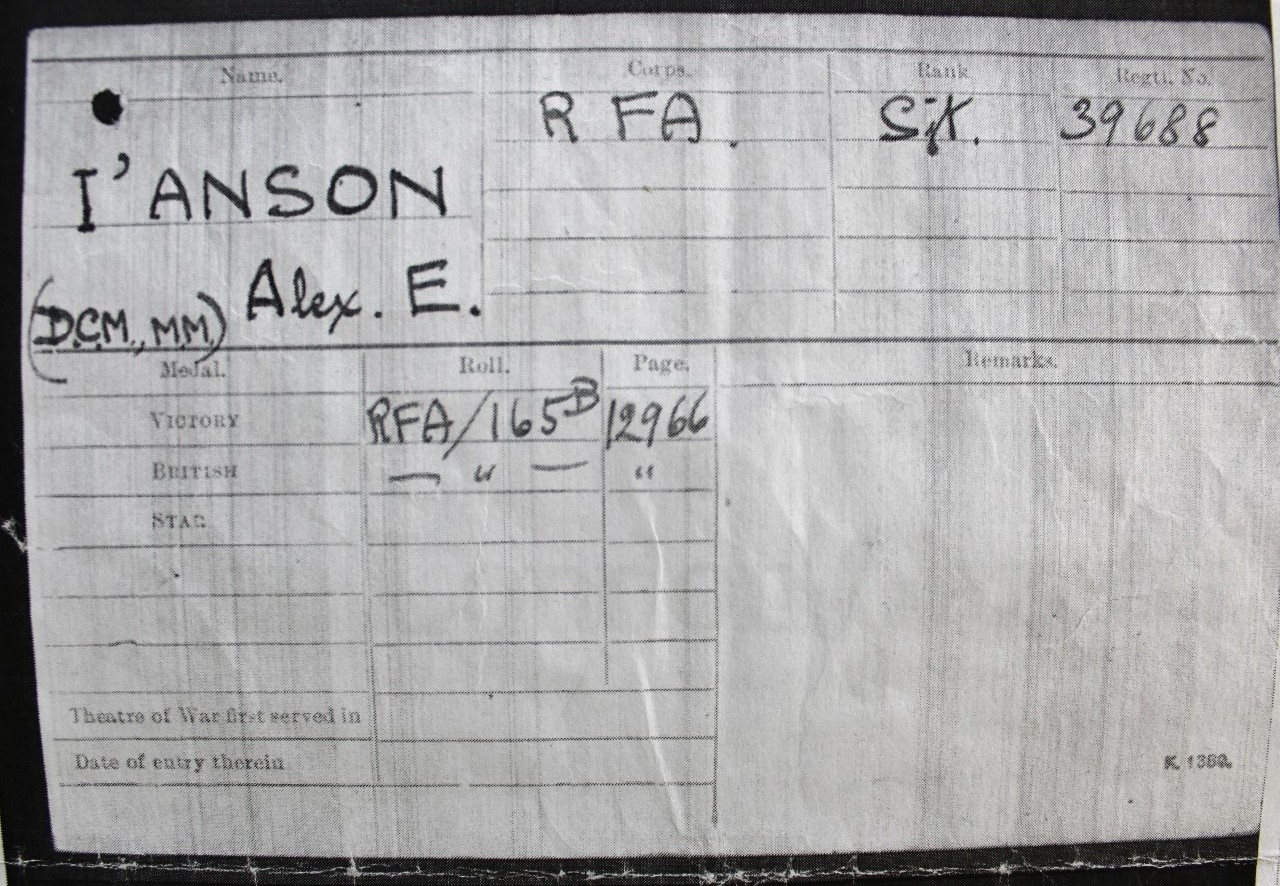 Name. Corps. Rank. Regtl. No.
R FA. Sjt. 39688
I'ANSON
(D.C.M., M.M.) Alex. E.
Medal. Roll. Page. Remarks.
VICTORY RFA/165B 12966
BRITISH — " — "
STAR
Theatre of War first served in
Date of entry therein
K. 1380.